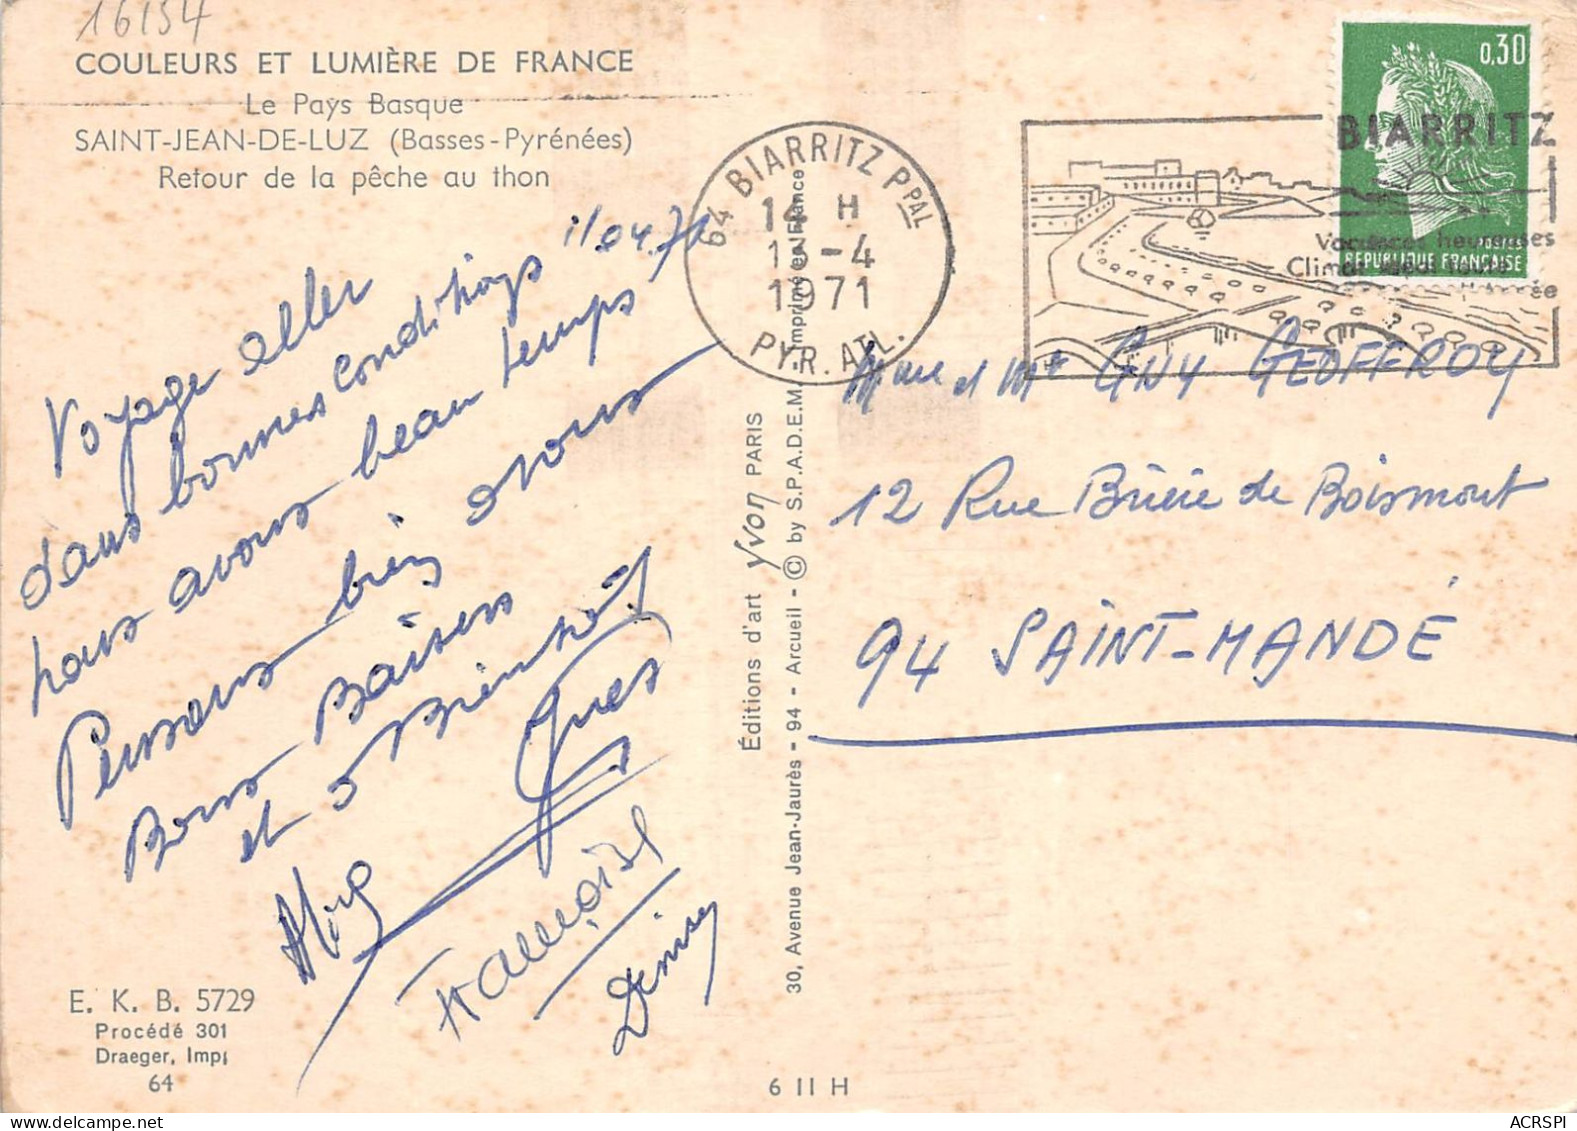 16154
COULEURS ET LUMIÈRE DE FRANCE
Le Pays Basque
SAINT-JEAN-DE-LUZ (Basses-Pyrénées)
Retour de la pêche au thon
11/04.71
Voyage aller
dans bonnes conditions
nous avons beau temps
Pensons bien à vous
Bons Baisers
et à Bientôt
Yves
Françoise
Denise
E. K. B. 5729
Procédé 301
Draeger, Imp
64
64 BIARRITZ PPAL
14 H
-4
1971
PYR. ATL.
Imprimé en France
Éditions d'art Yvon PARIS
30, Avenue Jean-Jaurès - 94 - Arcueil - © by S.P.A.D.E.M.
6 11 H
0,30
RÉPUBLIQUE FRANÇAISE
BIARRITZ
Vacances heureuses
Climat
Mme et Mr GUY GEOFFROY
12 Rue Brière de Boismont
94 SAINT-MANDÉ
ACRSPI